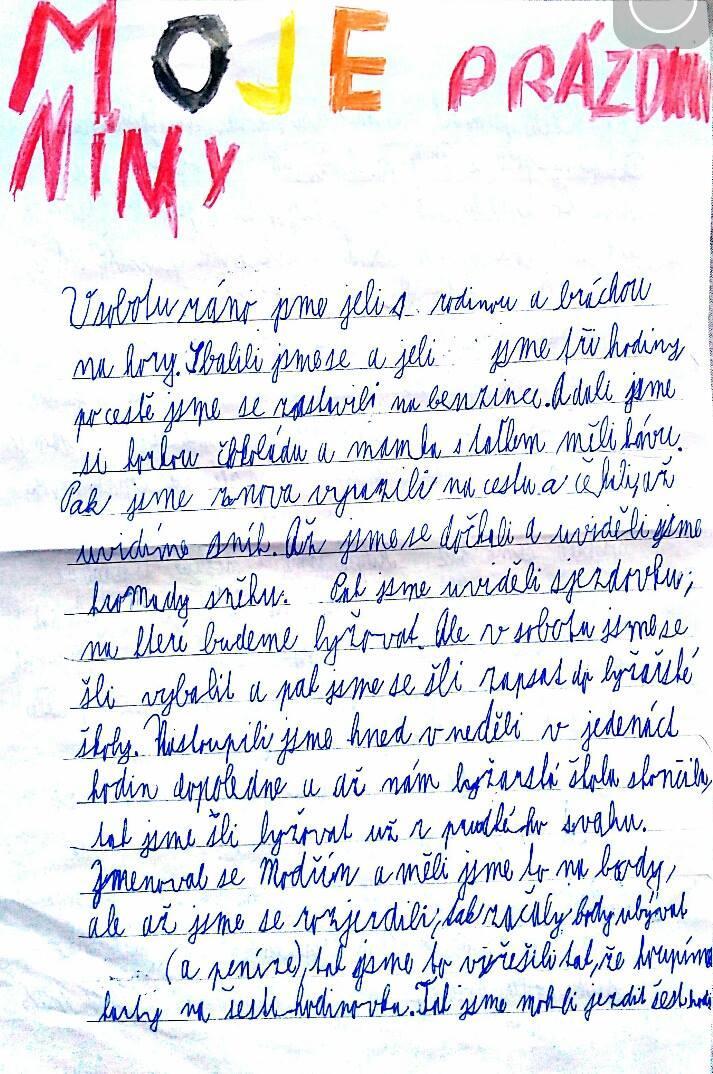 MOJE PRÁZDNI
NINY
V sobotu ráno jsme jeli s rodinou a bráchou
na hory. Sbalili jsme se a jeli jsme tři hodiny
po cestě jsme se zastavili na benzince. A dali jsme
si horkou čokoládu a mamka s taťkem měli kávu.
Pak jsme znova vyrazili na cestu a čekali, až
uvidíme sníh. Až jsme se dočkali a uviděli jsme
hromady sněhu. Pak jsme uviděli sjezdovku,
na které budeme lyžovat. Ale v sobotu jsme se
šli vybalit a pak jsme se šli zapsat do lyžařské
školy. Nastoupili jsme hned v neděli v jedenáct
hodin dopoledne a až nám lyžarská škola skončila,
tak jsme šli lyžovat už z prudkého svahu.
Jmenoval se Modřín a měli jsme to na body,
ale až jsme se rozjezdili, tak začaly body ubývat
(a peníze), tak jsme to vyřešili tak, že koupíme
karty na šesti hodinovku. Tak jsme mohli jezdit šest hodi